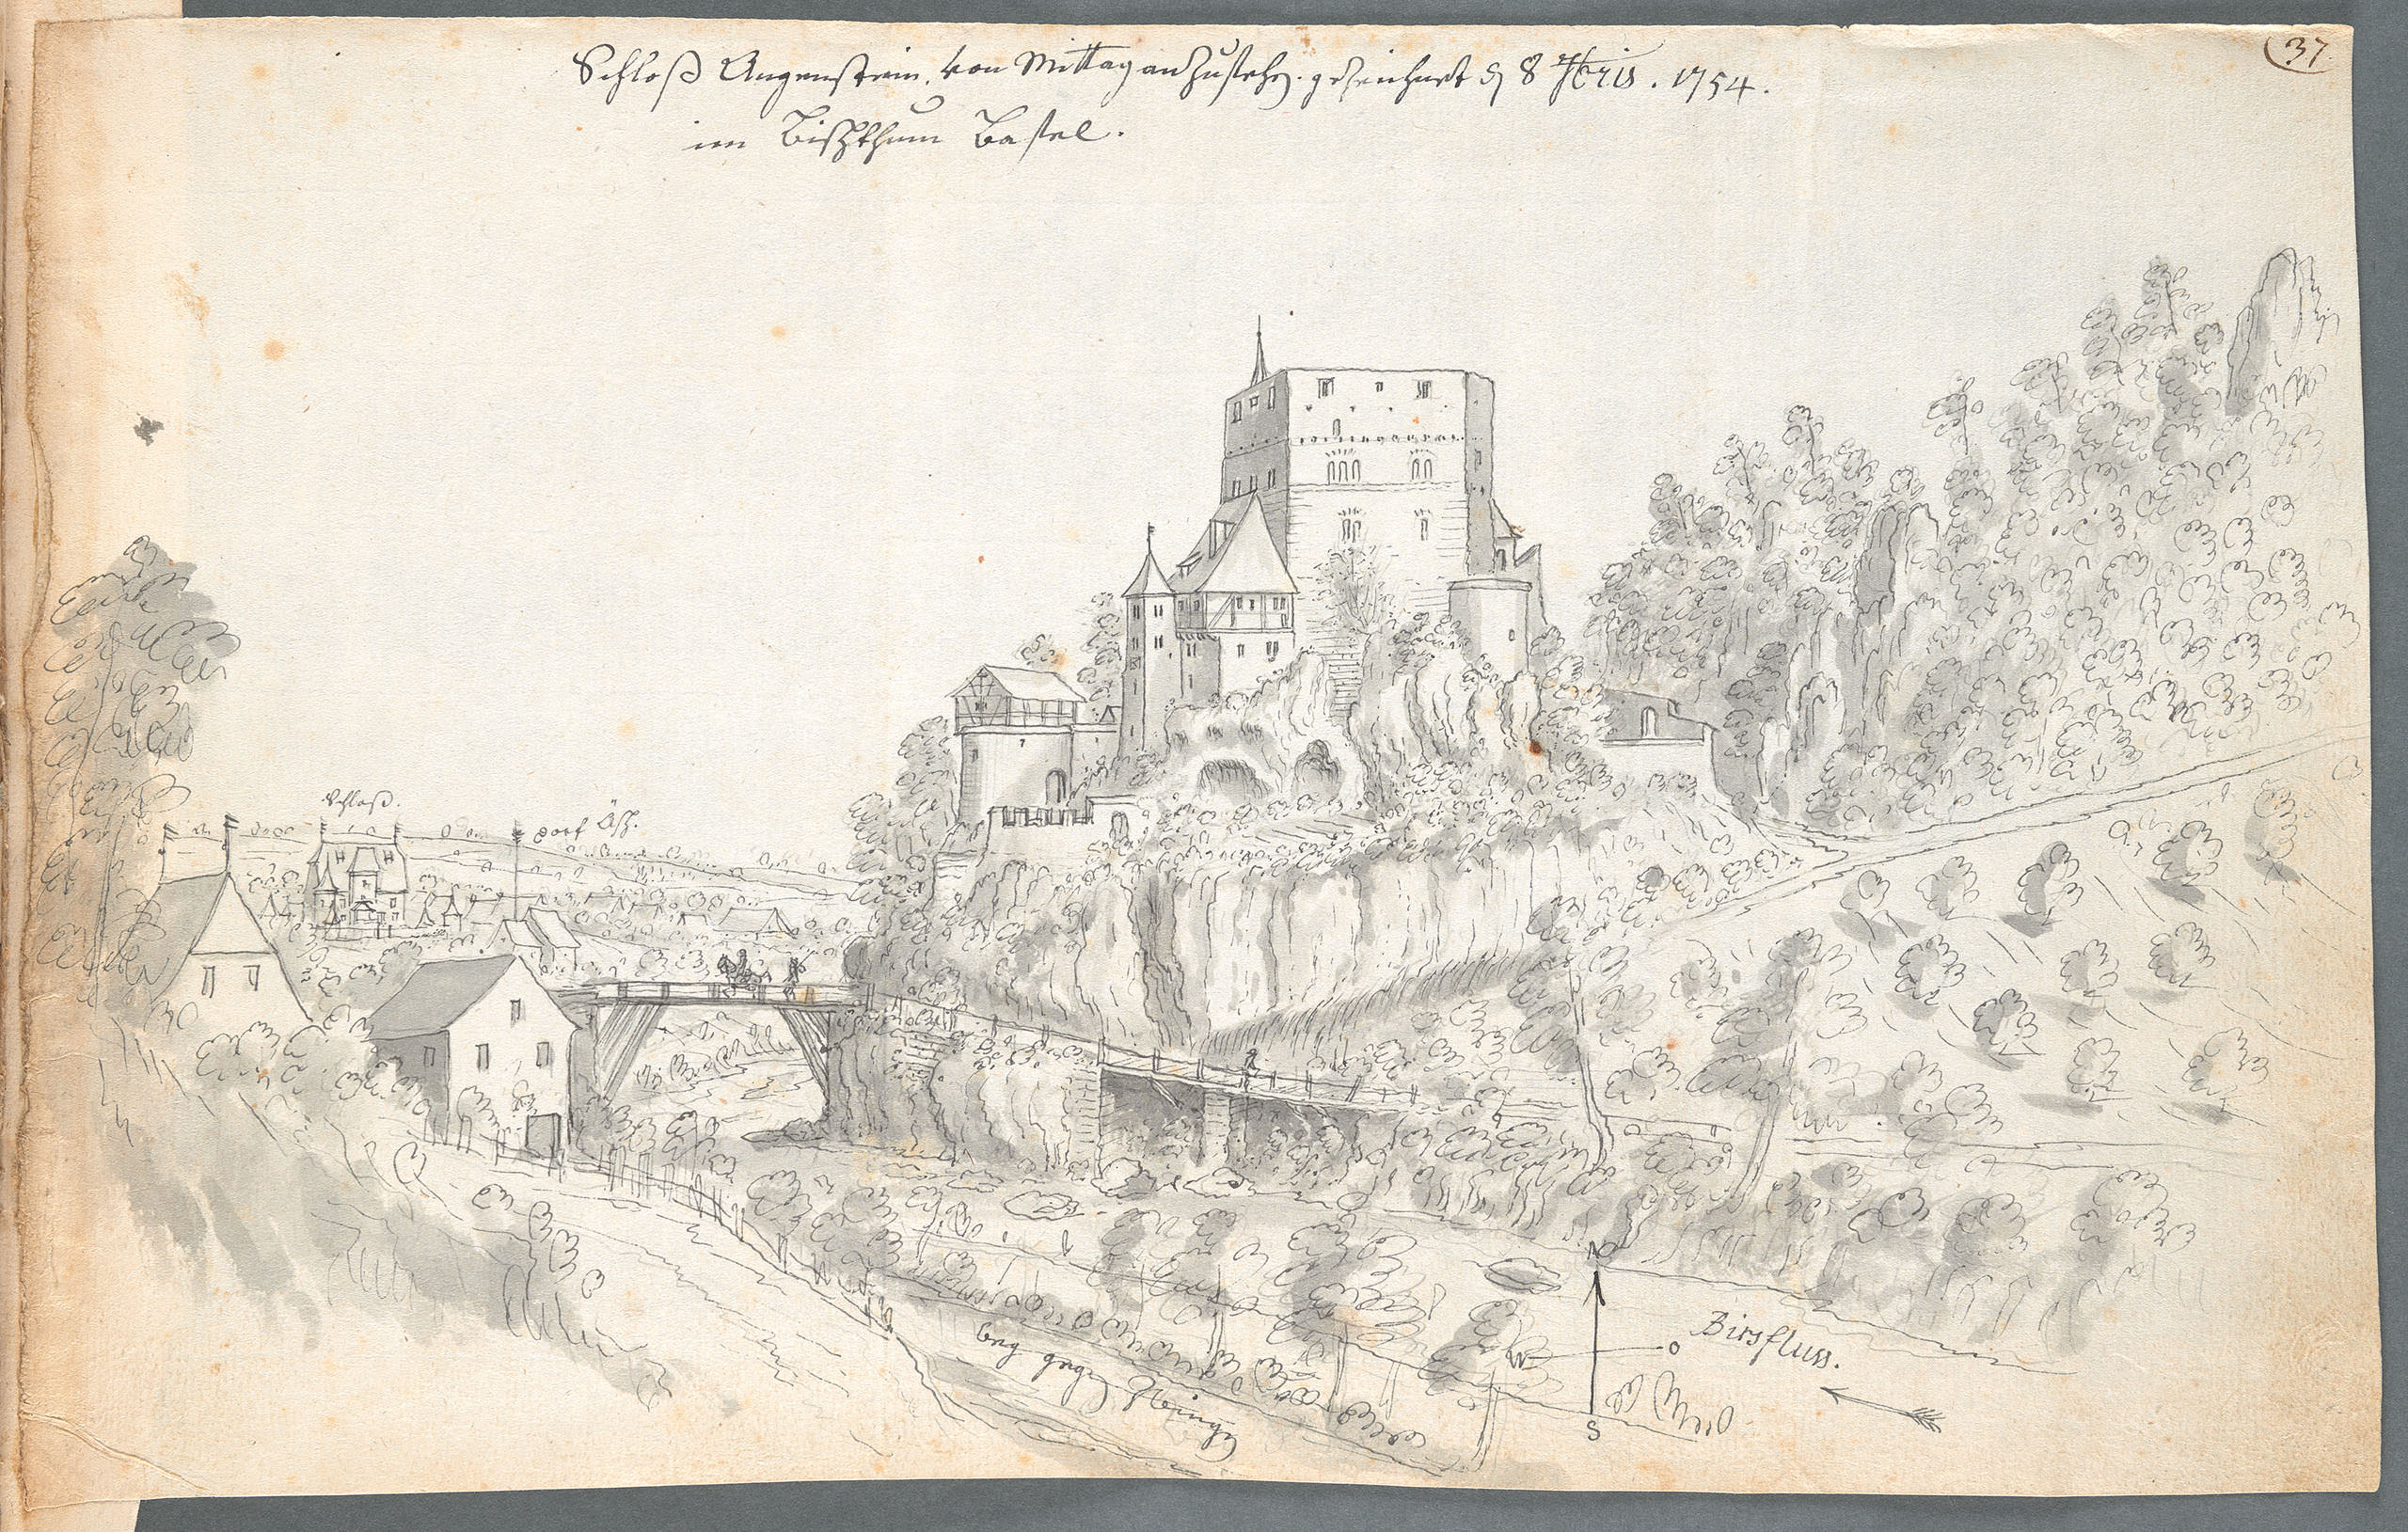 37.
Schloß Angenstein. von Mittag anzusehen. gezeichnet den 8 7bris. 1754.
im Bischthum Basel.
Schloß.
Dorf Äsch.
N
W O
S
Birsfluss.
weg gegen